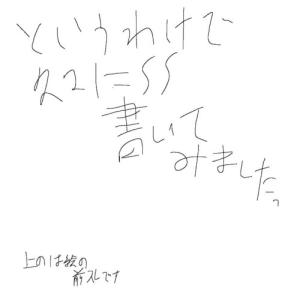 というわけで
久々にSS
書いて
みましたっ
上のは絵の
前スレです